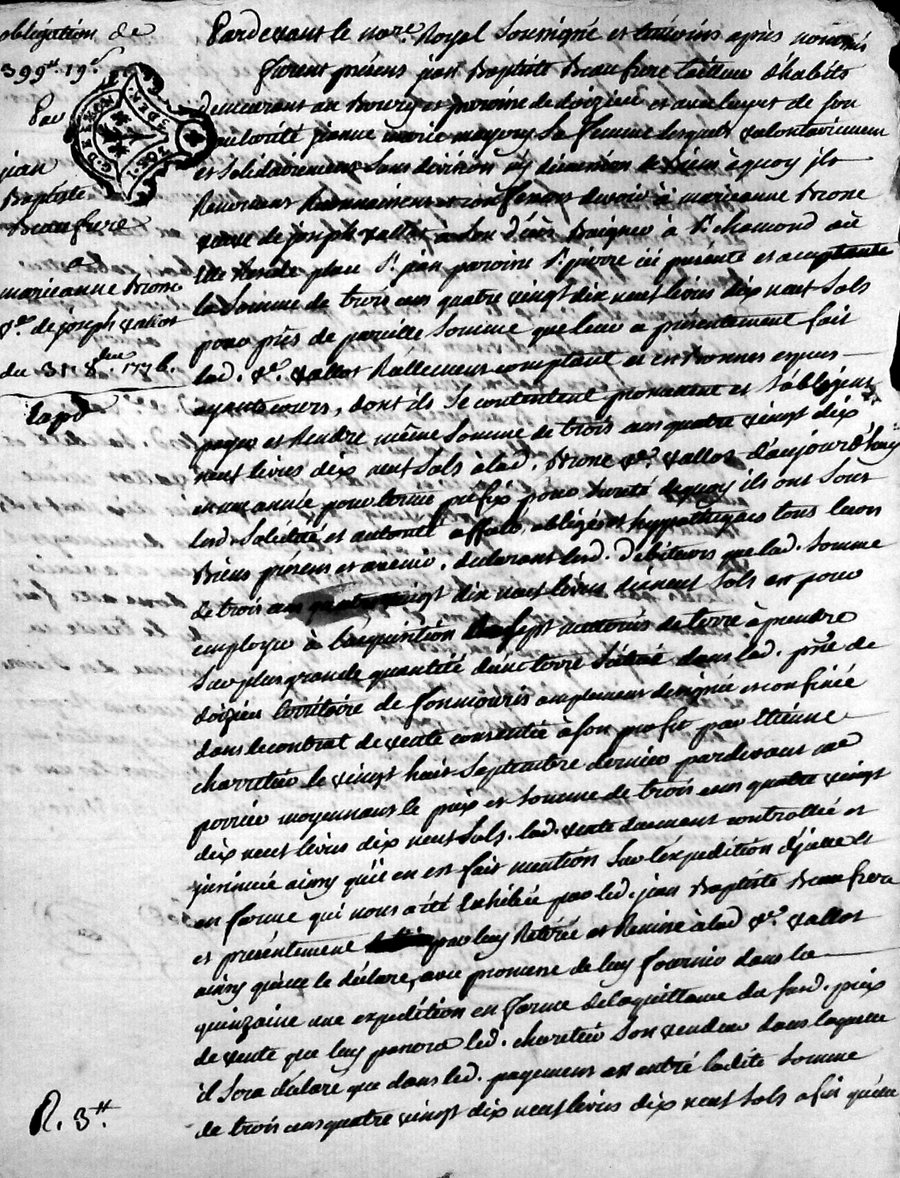 obligation de
399# 19s
Par
jean
Baptiste
Beaufrere
a
marieanne Brone
ve. de joseph vallot
du 31 8bre 1776.
R. 3#.
Pardevant le nore. Royal Soussigné et témoins après nommés
furent présens jean Baptiste Beaufrere tailleur d'habits
demeurant au Bourg et paroisse de doizieu et avec luy et de son
autorité jeanne marie sa femme lesquels volontairement
et Solidairement Sans division ny discution de Biens à quoy ils
Renoncent Reconnaissent et confessent devoir à marieanne Brone
veuve de joseph vallot à St. chamond où
Elle Reside place St. jean paroisse St. pierre ici présente et acceptante
la Somme de trois cens quatre vingt dix neuf livres dix neuf Sols
pour prés de pareille Somme que leur a présentement fait
lad. ve. vallot Réallement comptant et en Bonnes especes
ayants cours, dont ils Se contentent promettent et S'obligent
payer et Rendre même Somme de trois cens quatre vingt dix
neuf livres dix neuf Sols à lad. Brone ve. vallot d'aujourd'huy
en une année pour terme préfix pour Sureté dequoy ils ont Sous
lesd. Solidité et autorité affecté, obligé et hyppothequés tous leurs
Biens présens et avenir, déclarant lesd. débiteurs que lad. Somme
de trois cens quatre vingt dix neuf livres dix neuf Sols est pour
employer à l'acquisition Sept de terre à prendre
Sur plus grande quantité d'une terre Scituée dans lad. psse de
doizieu territoire de amplement designée et confinée
dans le contrat de vente consentie à Son profit par Etienne
charretier le vingt huit Septembre dernier pardevant me
moyennant le prix et Somme de trois cens quatre vingt
dix neuf livres dix neuf Sols. lad. vente duement controllée et
jnsinuée ainsy qu'il en est fait mention Sur l'expedition d'jcelle
en forme qui nous a été Exhibée par led. jean Baptiste Beaufrere
et présentement par luy Retirée et Remise à lad. ve. vallot
ainsy qu'elle le déclare, avec promesse de luy fournir dans la
quinzaine une expedition en forme de la quittance du susd. prix
de vente que luy passera led. charetier Son vendeur dans laquelle
il Sera déclaré que dans led. payement est entré ladite Somme
de trois cens quatre vingt dix neuf livres dix neuf Sols afin qu'elle